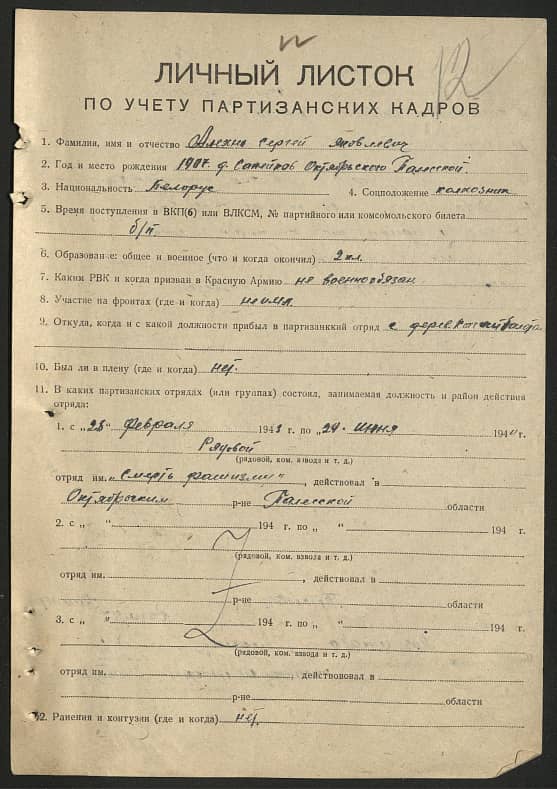 12
ЛИЧНЫЙ ЛИСТОК
ПО УЧЕТУ ПАРТИЗАНСКИХ КАДРОВ
1. Фамилия, имя и отчество Сергей Яковлевич
2. Год и место рождения 1907 д. Октябрьского Полесской
3. Национальность Белорус 4. Соцположение колхозник
5. Время поступления в ВКП(б) или ВЛКСМ, № партийного или комсомольского билета
б/п
6. Образование: общее и военное (что и когда окончил) 2 кл.
7. Каким РВК и когда призван в Красную Армию не военнообязан
8. Участие на фронтах (где и когда) не имел
9. Откуда, когда и с какой должности прибыл в партизанккий отряд с дерев.
10. Был ли в плену (где и когда) нет.
11. В каких партизанских отрядах (или группах) состоял, занимаемая должность и район действия
отряда:
1. с „ Февраля 194 г. по „ июня 194 г.
Рядовой
(рядовой, ком. взвода и т. д.)
отряд им. „Смерть фашизму“, действовал в
Октябрьским р-не Полесской области
2. с „ “ 194 г. по „ “ 194 г.
(рядовой, ком. взвода и т. д.)
отряд им. , действовал в
р-не области
3. с „ “ 194 г. по „ “ 194 г.
(рядовой, ком. взвода и т. д.)
отряд им. , действововал в
р-не области
12. Ранения и контузии (где и когда) нет.